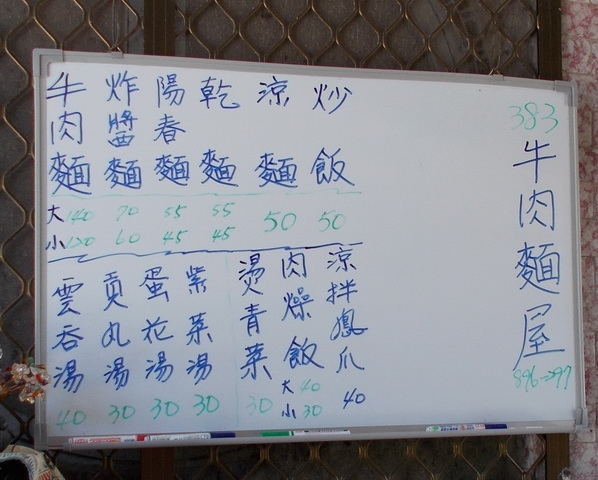 383
牛肉麵屋
牛肉麵
炸醬麵
陽春麵
乾麵
涼麵
炒飯
大 140 70 55 55 50 50
小 120 60 45 45
雲吞湯
40
貢丸湯
30
蛋花湯
30
紫菜湯
30
燙青菜
30
肉燥飯
大 40
小 30
涼拌鳳爪
40